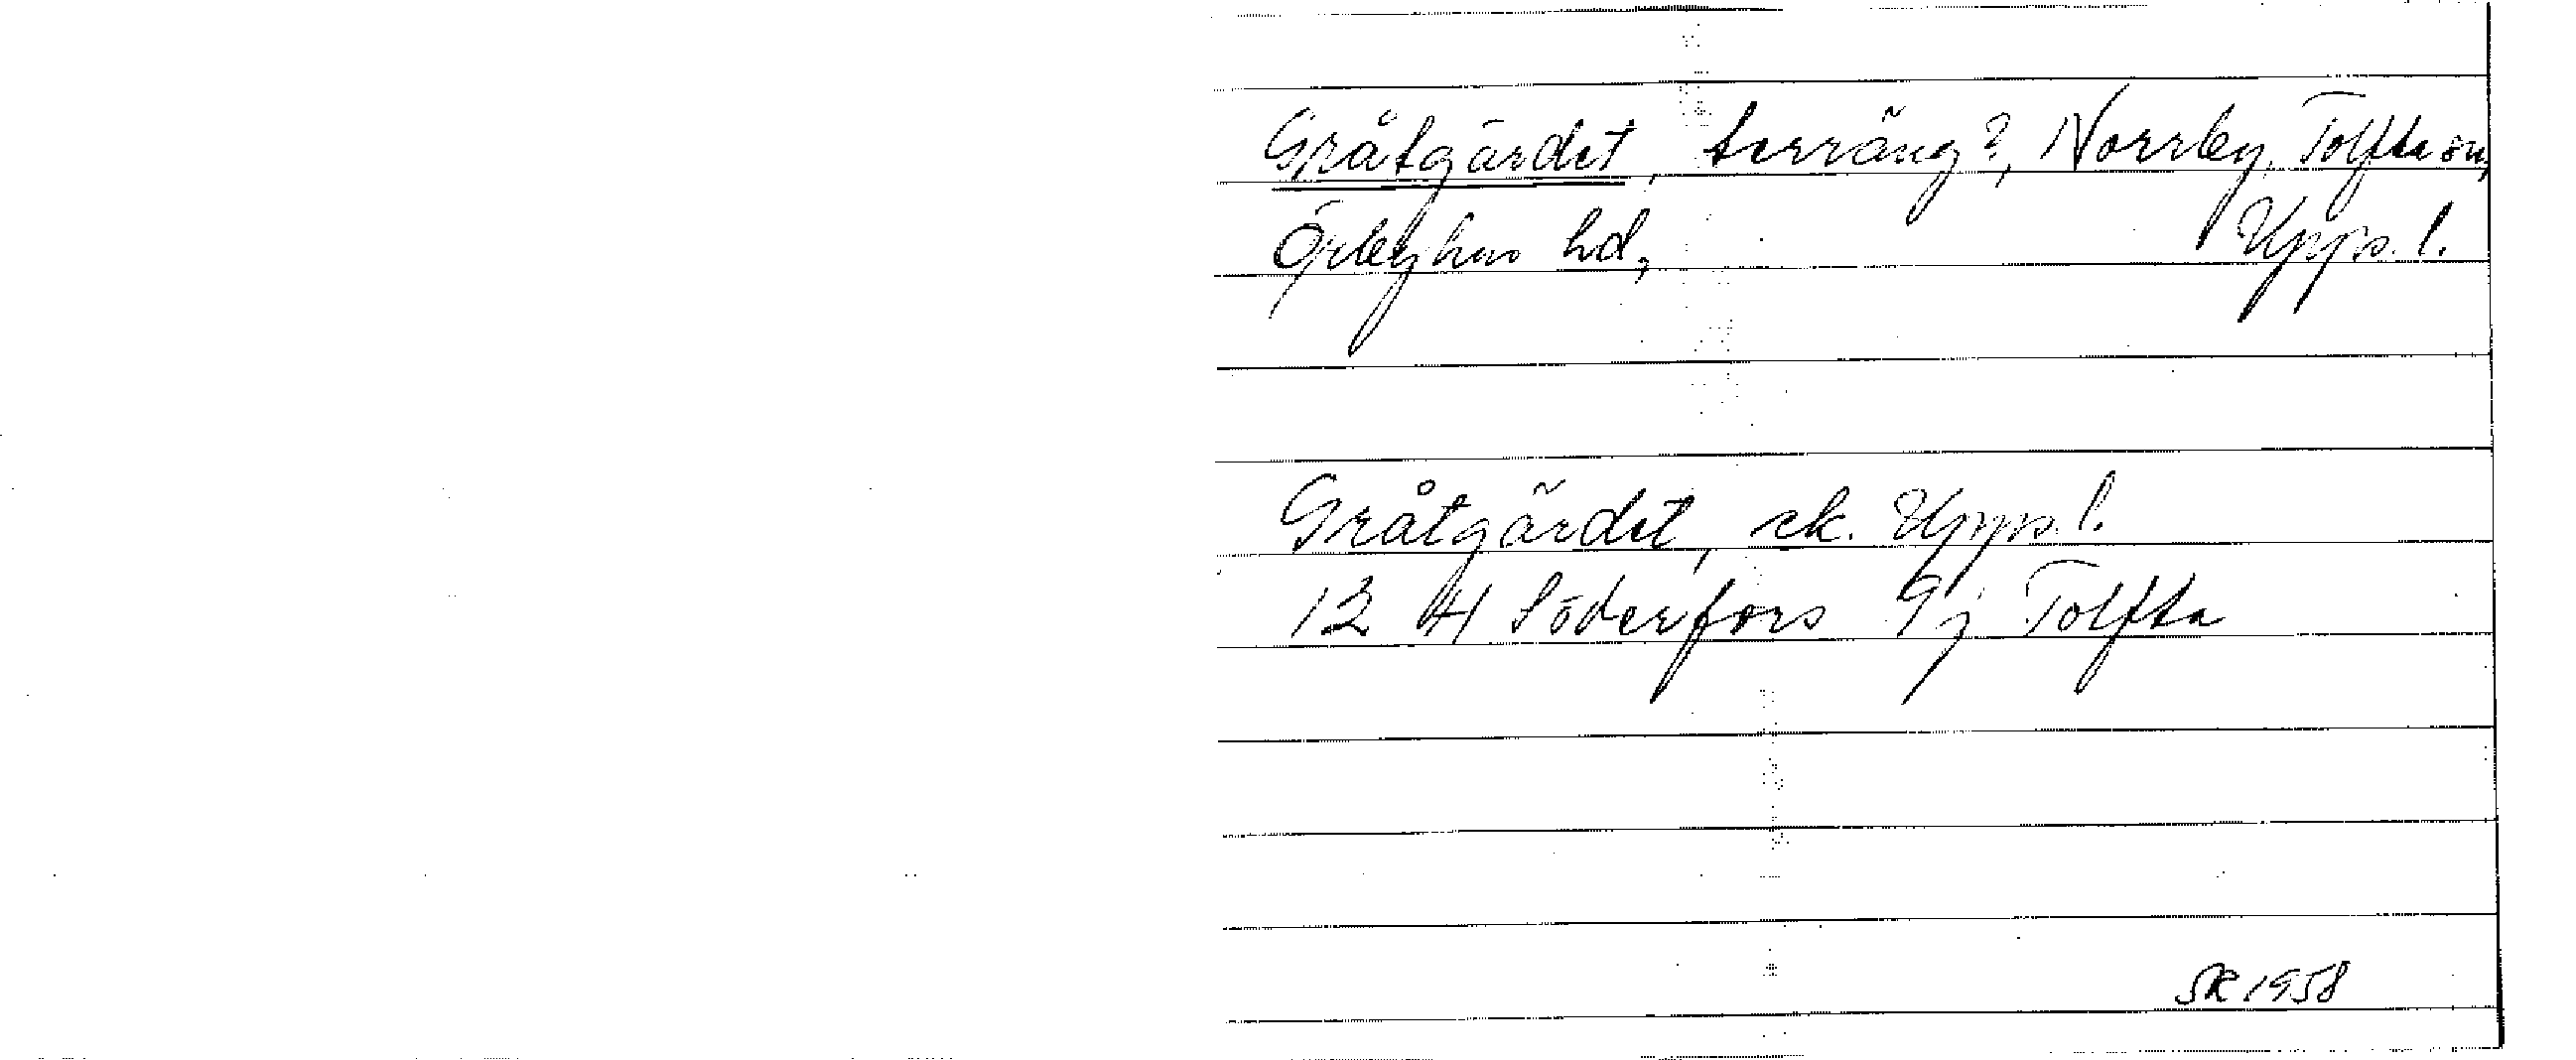 Gråtgärdet, terräng?, Norrby, Tolfta sn,
Örbyhus hd, Upps. l.
Gråtgärdet, ek. Upps. l.
12 H Söderfors 9j Tolfta
SR 1958